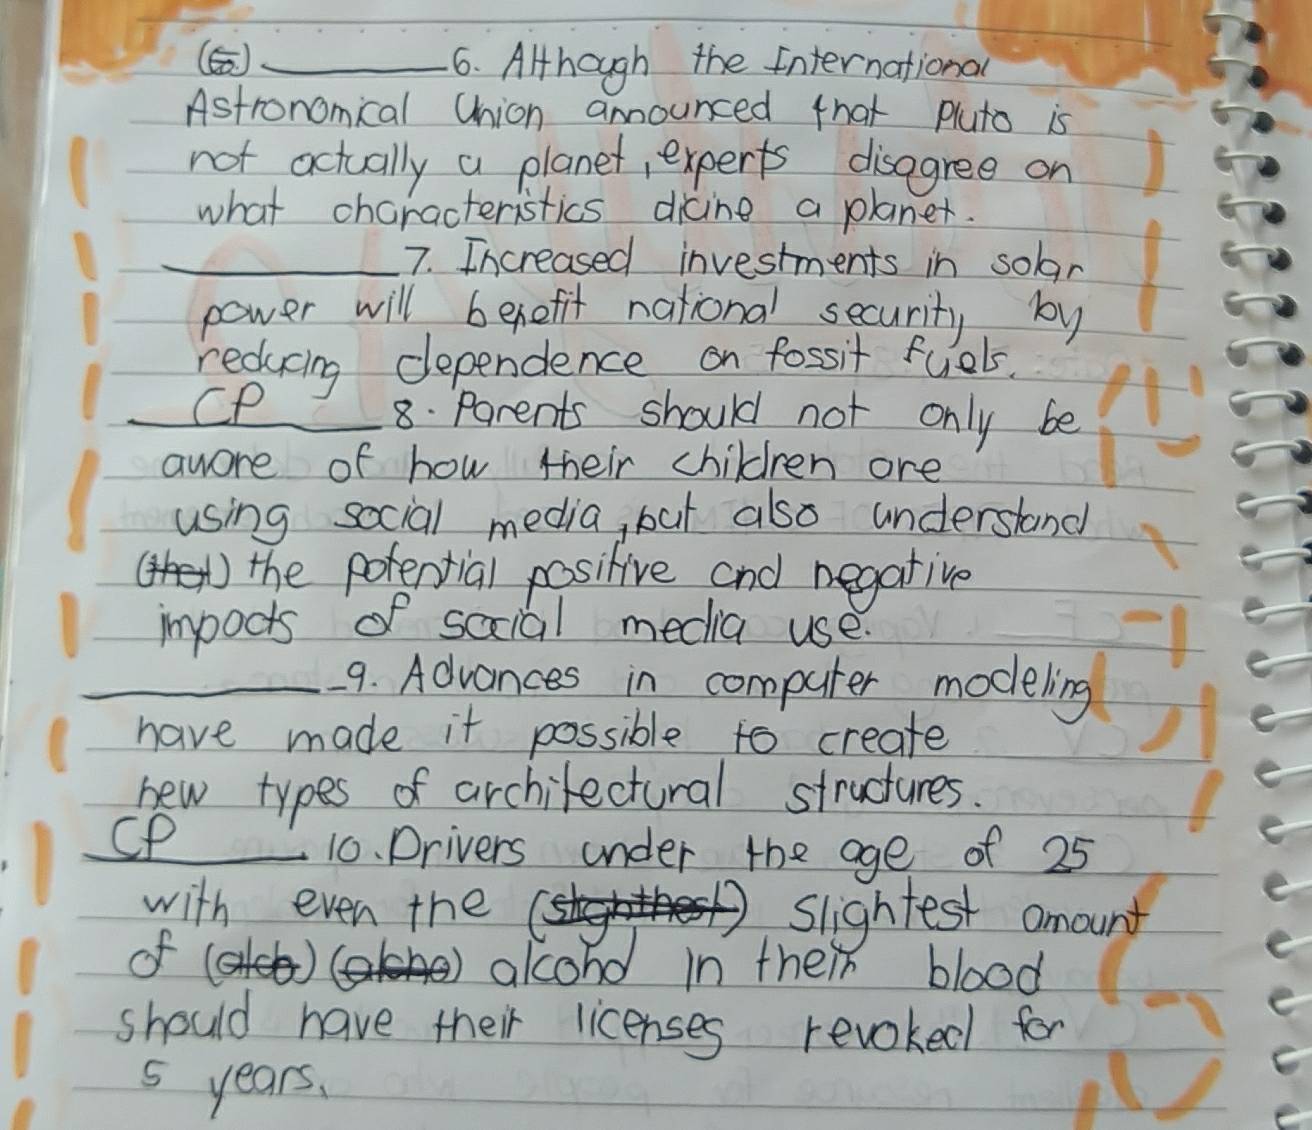 (5) ________ 6. Although the International
Astronomical Union announced that Pluto is
not actually a planet, experts disagree on
what characteristics dicine a planet.
________ 7. Increased investments in solar
power will benefit national security by
reducing dependence on fossit fuels.
CP 8. Parents should not only be
aware of how their children are
using social media, but also understand
(thei) the potential positive and negative
impacts of social media use.
________ 9. Advances in computer modeling
have made it possible to create
new types of architectural structures.
CP 10. Drivers under the age of 25
with even the (slighthest) slightest amount
of (alcb) (alcho) alcohol in their blood
should have their licenses revoked for
5 years.